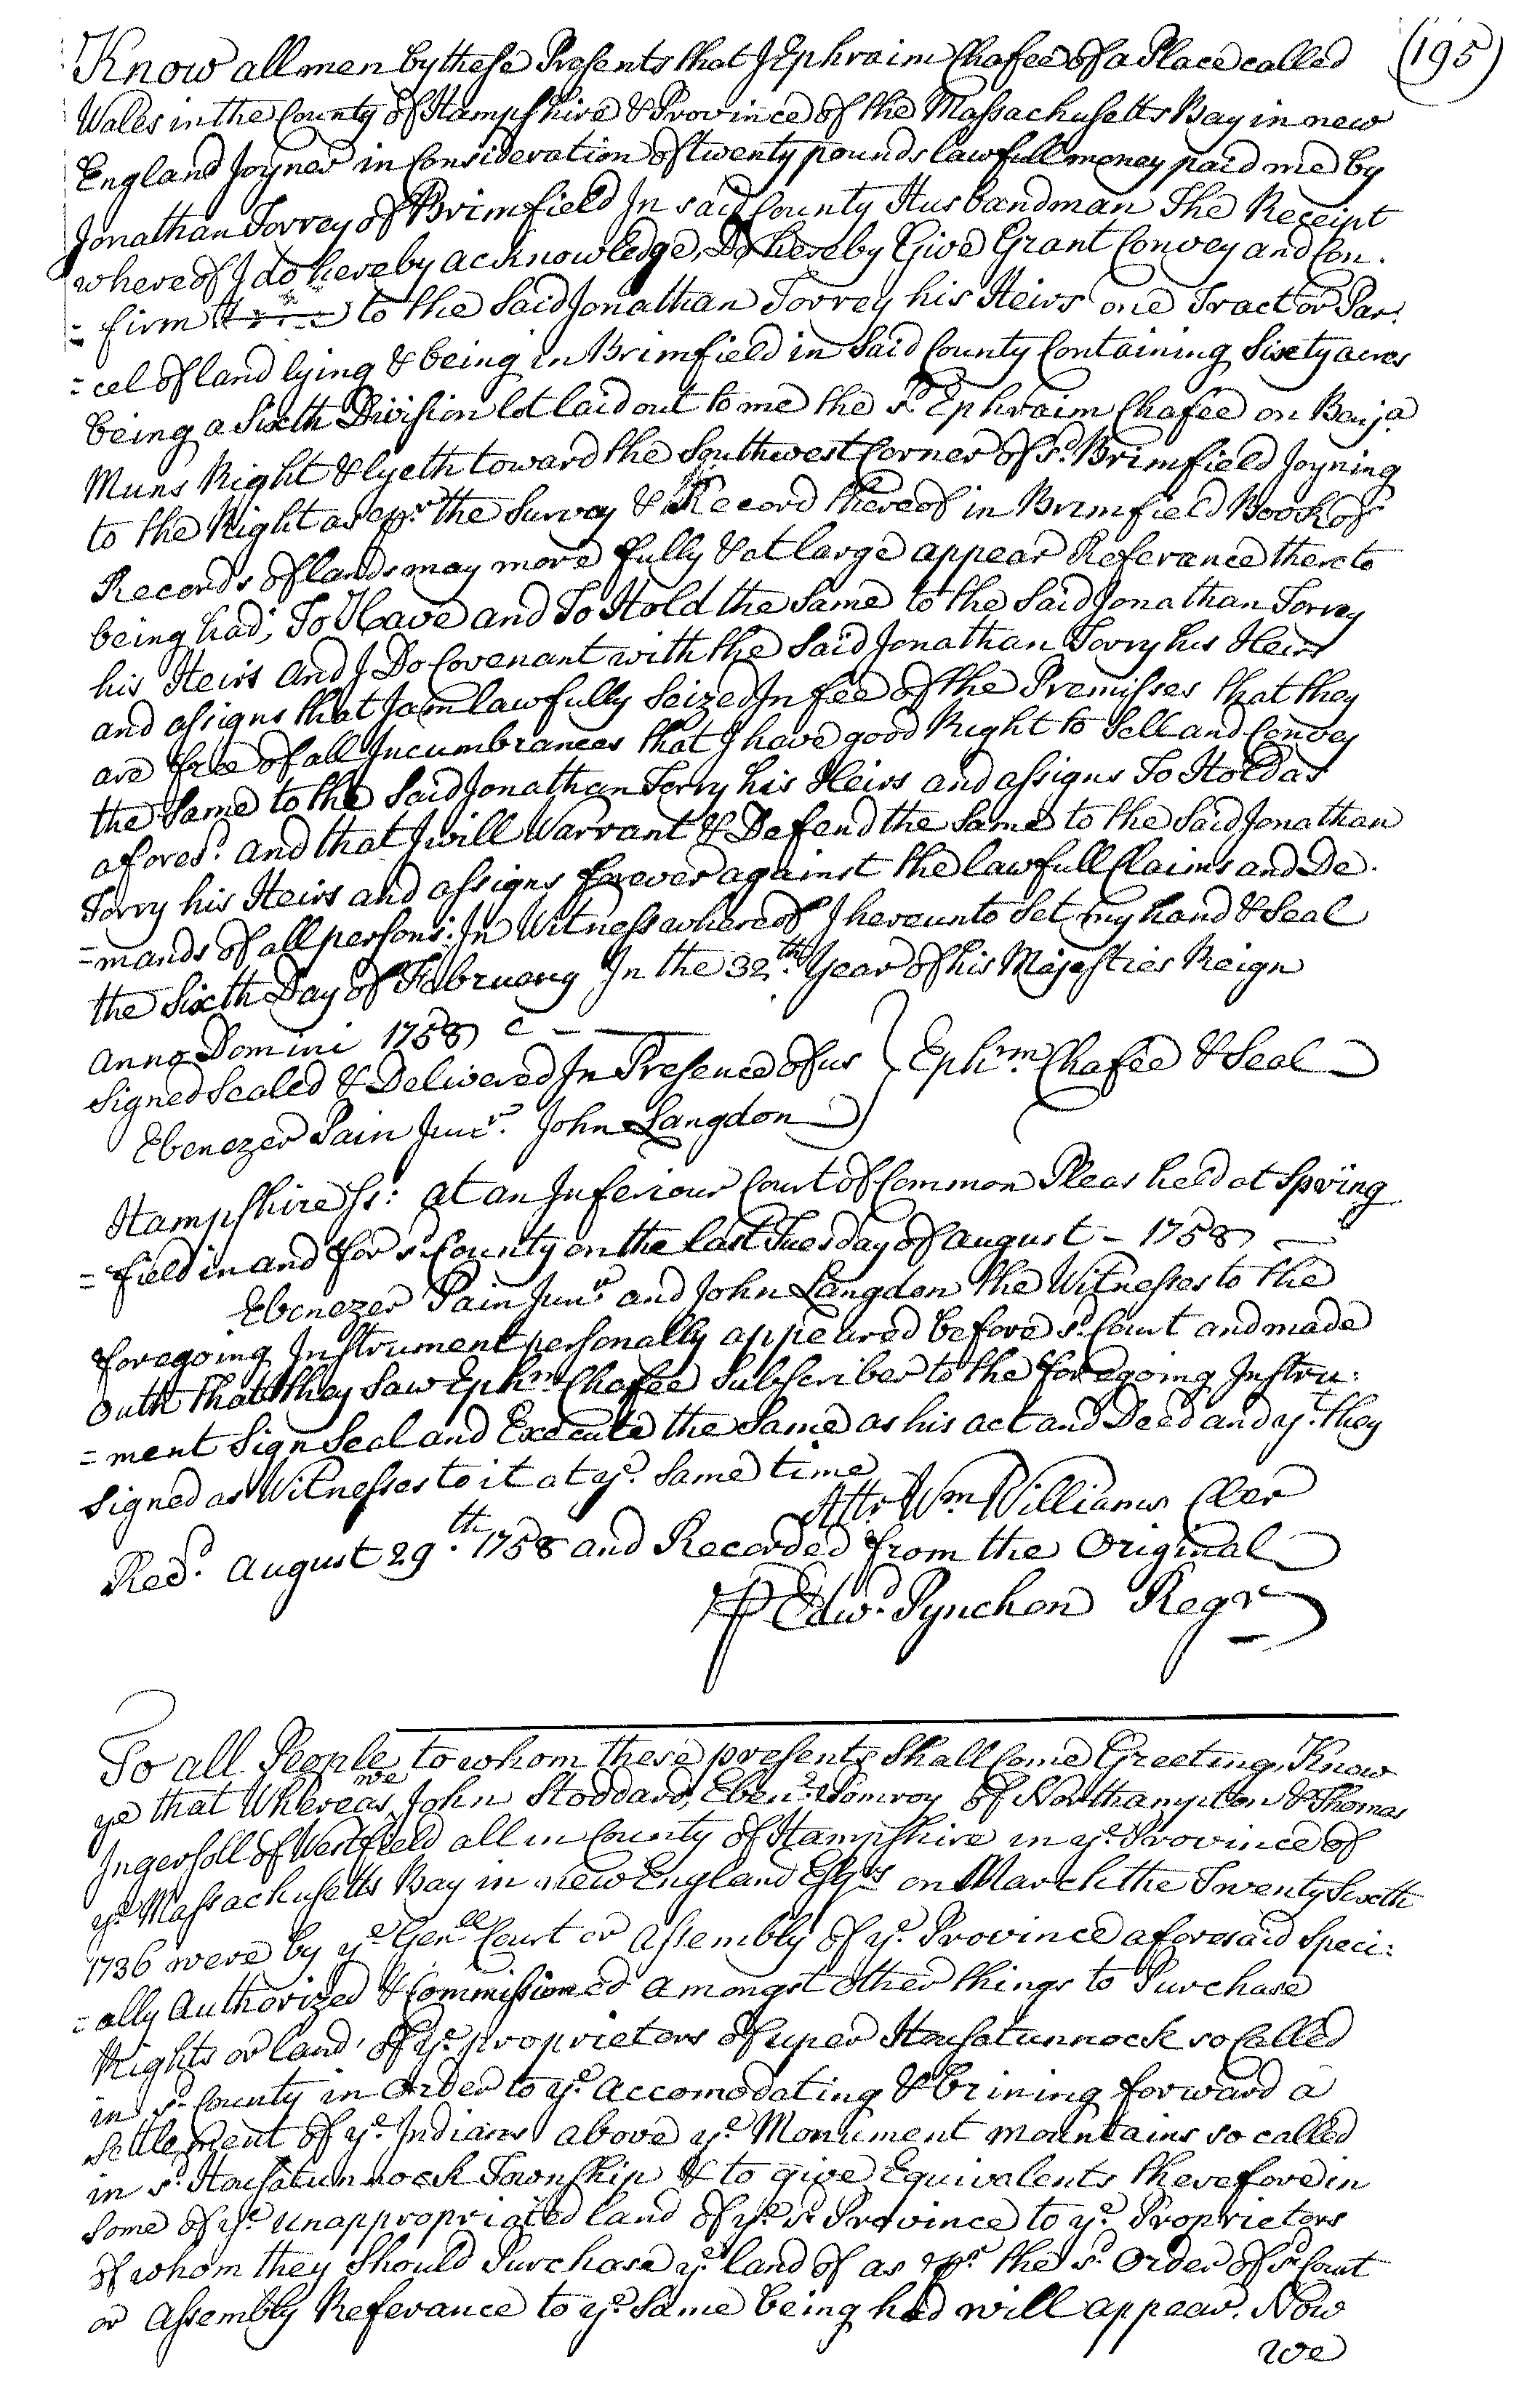 (195)
Know all men by these Presents that I Ephraim Chafee of a Place called
Wales in the County of Hampshire & Province of the Massachusetts Bay in new
England Joyner in Consideration of twenty pounds lawfull money paid me by
Jonathan Torrey of Brimfield In said County Husbandman The Receipt
whereof I do hereby acknowledge, Do hereby Give Grant Convey and Con.
= firm to the Said Jonathan Torrey his Heirs one Tract or Par:
= cel of land lying & being in Brimfield in Said County Containing Sixty acres
being a Sixth Division lot laid out to me the sd. Ephraim Chafee on Benja
Muns Right & lyeth toward the Southwest Corner of sd. Brimfield Joyning
to the Right as pr. the Survey & Record thereof in Brimfield Book of
Records of lands may more fully & at large appear Referance thereto
being had; To Have and To Hold the Same to the Said Jonathan Torrey
his Heirs and I Do Covenant with the Said Jonathan Torry his Heirs
and assigns that I am lawfully Seized In fee of the Premisses that they
are free of all Incumbrances that I have good Right to Sell and Convey
the Same to the Said Jonathan Torry his Heirs and assigns To Hold as
afores.d and that I will Warrant & Defend the Same to the Said Jonathan
Torry his Heirs and assigns forever against the lawfull Claims and De.
= mands of all persons: In Witness whereof I hereunto Set my hand & Seal
the Sixth Day of February In the 32th. Year of his Majesties Reign
anno Domini 1758
Signed Sealed & Delivered In Presence of us } Ephrm. Chafee & Seal
Ebenezer Pain Junr. John Langdon
Hampshire Ss: at an Inferiour Court of Common Pleas held at Spring
= field in and for sd. County on the last Tuesday of august - 1758
Ebenezer Pain Junr and John Langdon the Witnesses to the
foregoing Instrument personally appeared before sd. Court and made
outh that they Saw Ephm Chafee Subscriber to the foregoing Instru:
= ment Sign Seal and Execute the Same as his act and Deed and yt. they
Signed as Witnesses to it at ye. Same time
Attr Wm Williams Cler
Recd. august 29.th 1758 and Recorded from the Original
P Edwd. Pynchon Regr
To all People to whom these presents Shall Come Greeting, Know
ye that Whereas we John Stoddard, Ebenr. Pomroy of Northampton & Thomas
Ingersoll of Westfield all in County of Hampshire in ye. Province of
ye Massachusetts Bay in new England Esqrs on March the Twenty Sixth
1736 were by ye Genll Court or Assembly of ye. Province aforesaid Speci:
= ally Authorized & Commissioned amongst other things to Purchase
Rights or land of ye. proprietors of uper Housatunnock so Called
in sd. County in Order to ye. accomodating & brining forward a
Settlement of ye. Indians above ye. Monument mountains so called
in sd. Housatunnock Township & to give Equivalents therefore in
some of ye. unappropriated land of ye. sd. Province to ye. Proprietors
of whom they Should Purchase ye. land of as pr. the sd. Order of sd. Court
or Assembly Referance to ye. Same being had will appear. Now
we